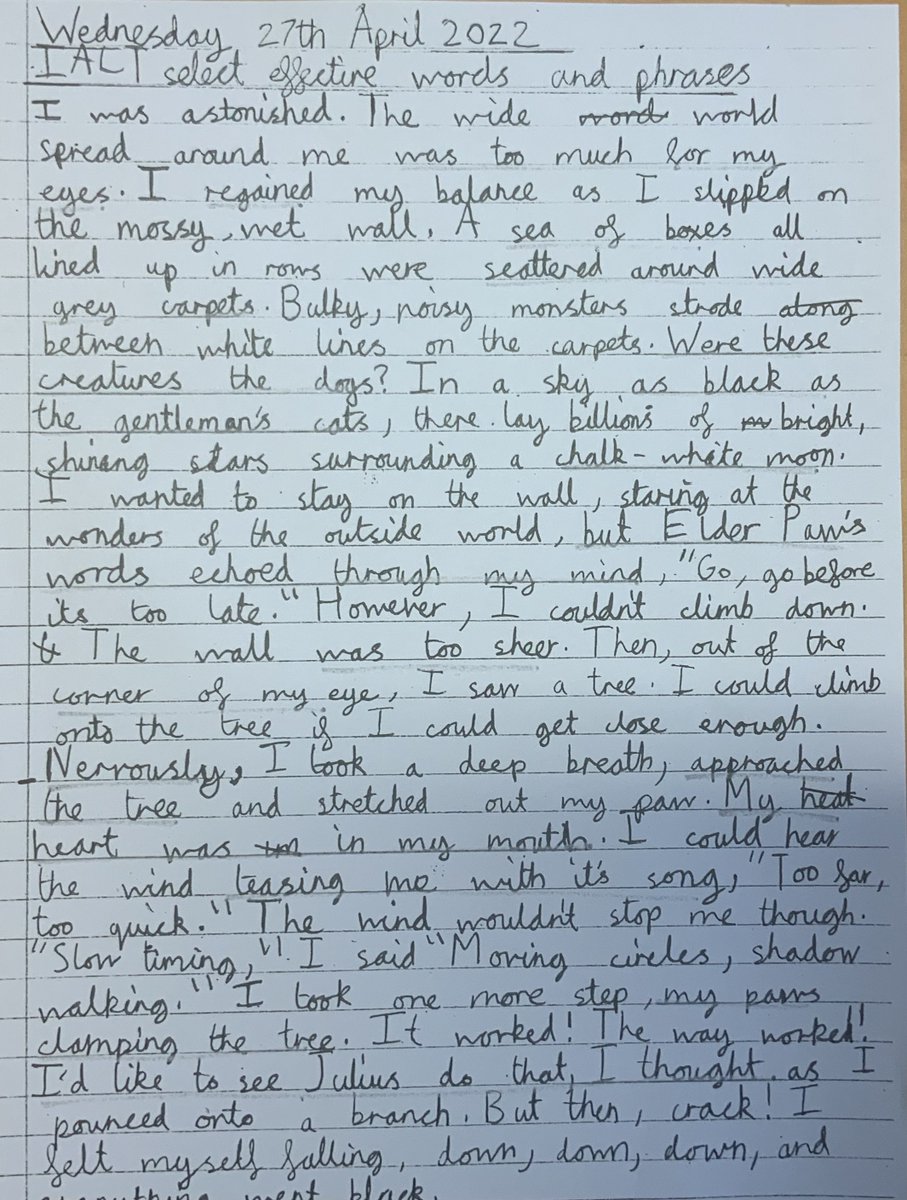 Wednesday 27th April 2022
IALT select effective words and phrases
I was astonished. The wide word world
spread around me was too much for my
eyes. I regained my balance as I slipped on
the mossy, wet wall. A sea of boxes all
lined up in rows were scattered around wide
grey carpets. Bulky, noisy monsters strode along
between white lines on the carpets. Were these
creatures the dogs? In a sky as black as
the gentleman's cats, there lay billions of bright,
shining stars surrounding a chalk-white moon.
I wanted to stay on the wall, staring at the
wonders of the outside world, but Elder Paw's
words echoed through my mind, "Go, go before
its too late." However, I couldn't climb down.
The wall was too sheer. Then, out of the
corner of my eye, I saw a tree. I could climb
onto the tree if I could get close enough.
Nervously, I took a deep breath, approached
the tree and stretched out my paw. My heat
heart was in my mouth. I could hear
the wind teasing me with it's song, "Too far,
too quick." The wind wouldn't stop me though.
"Slow timing," I said "Moving circles, shadow
walking." I took one more step, my paws
clamping the tree. It worked! The way worked!
I'd like to see Julius do that, I thought as I
pounced onto a branch. But then, crack! I
felt myself falling, down, down, down, and
everything went black.